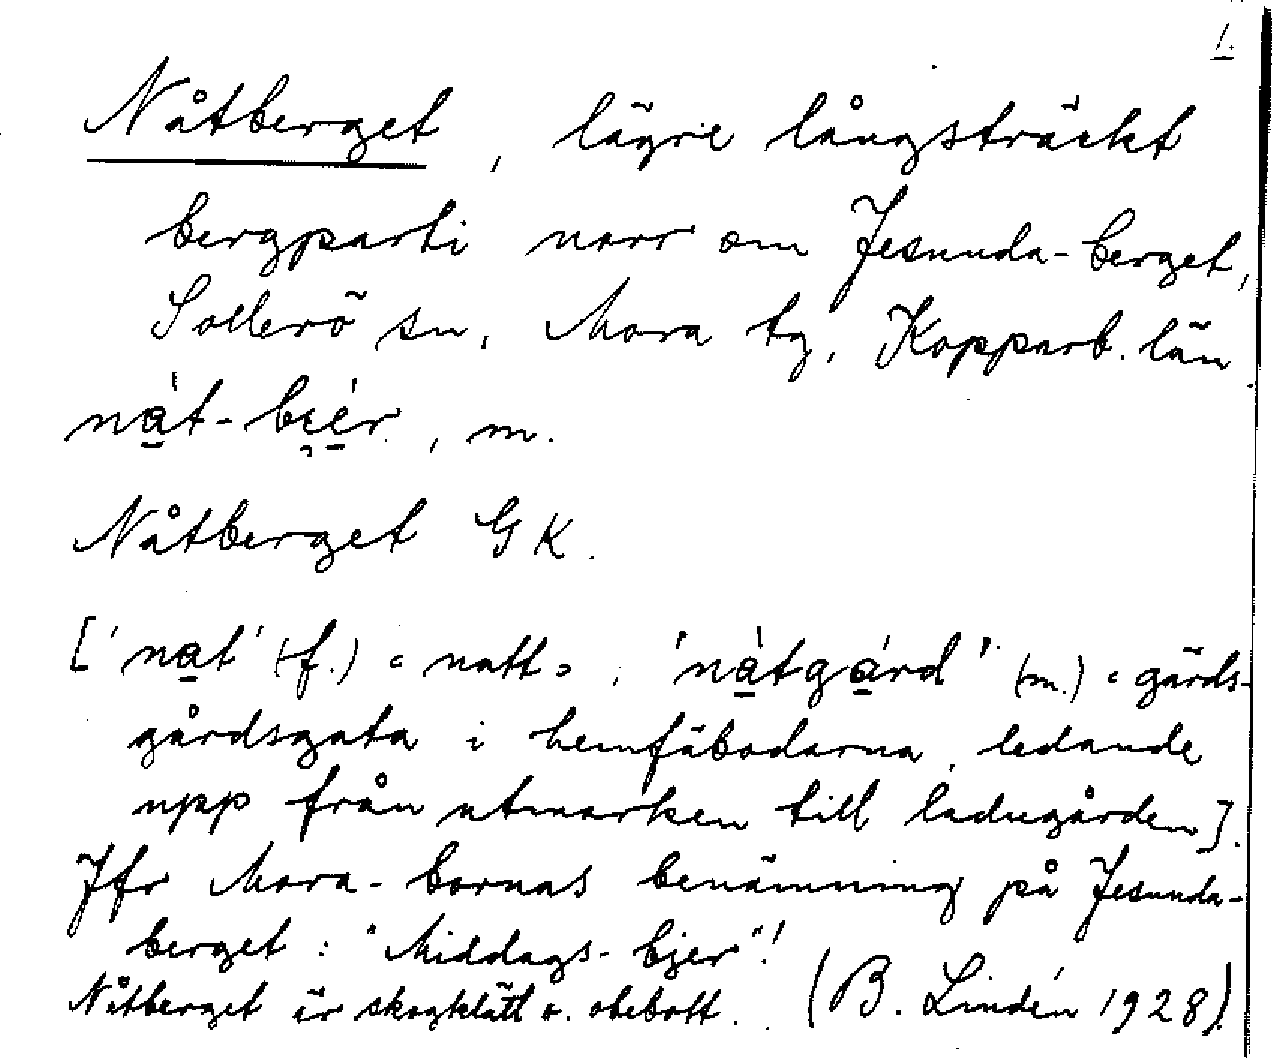 1.
Nåtberget, lägre långsträckt
bergparti norr om Jesunda-berget,
Sollerö sn, Mora tg, Kopparb. län
nàt-bi̯ér, m.
Nåtberget GK.
['nat' (f.) = natt; 'nàtgárd' (m.) = gärds-
gårdsgata i hemfäbodarna, ledande
upp från utmarken till ladugården].
Jfr Mora-bornas benämning på Jesunda-
berget: "Middags-bjer"!
Nåtberget är skogklätt o. obebott. (B. Lindén 1928)